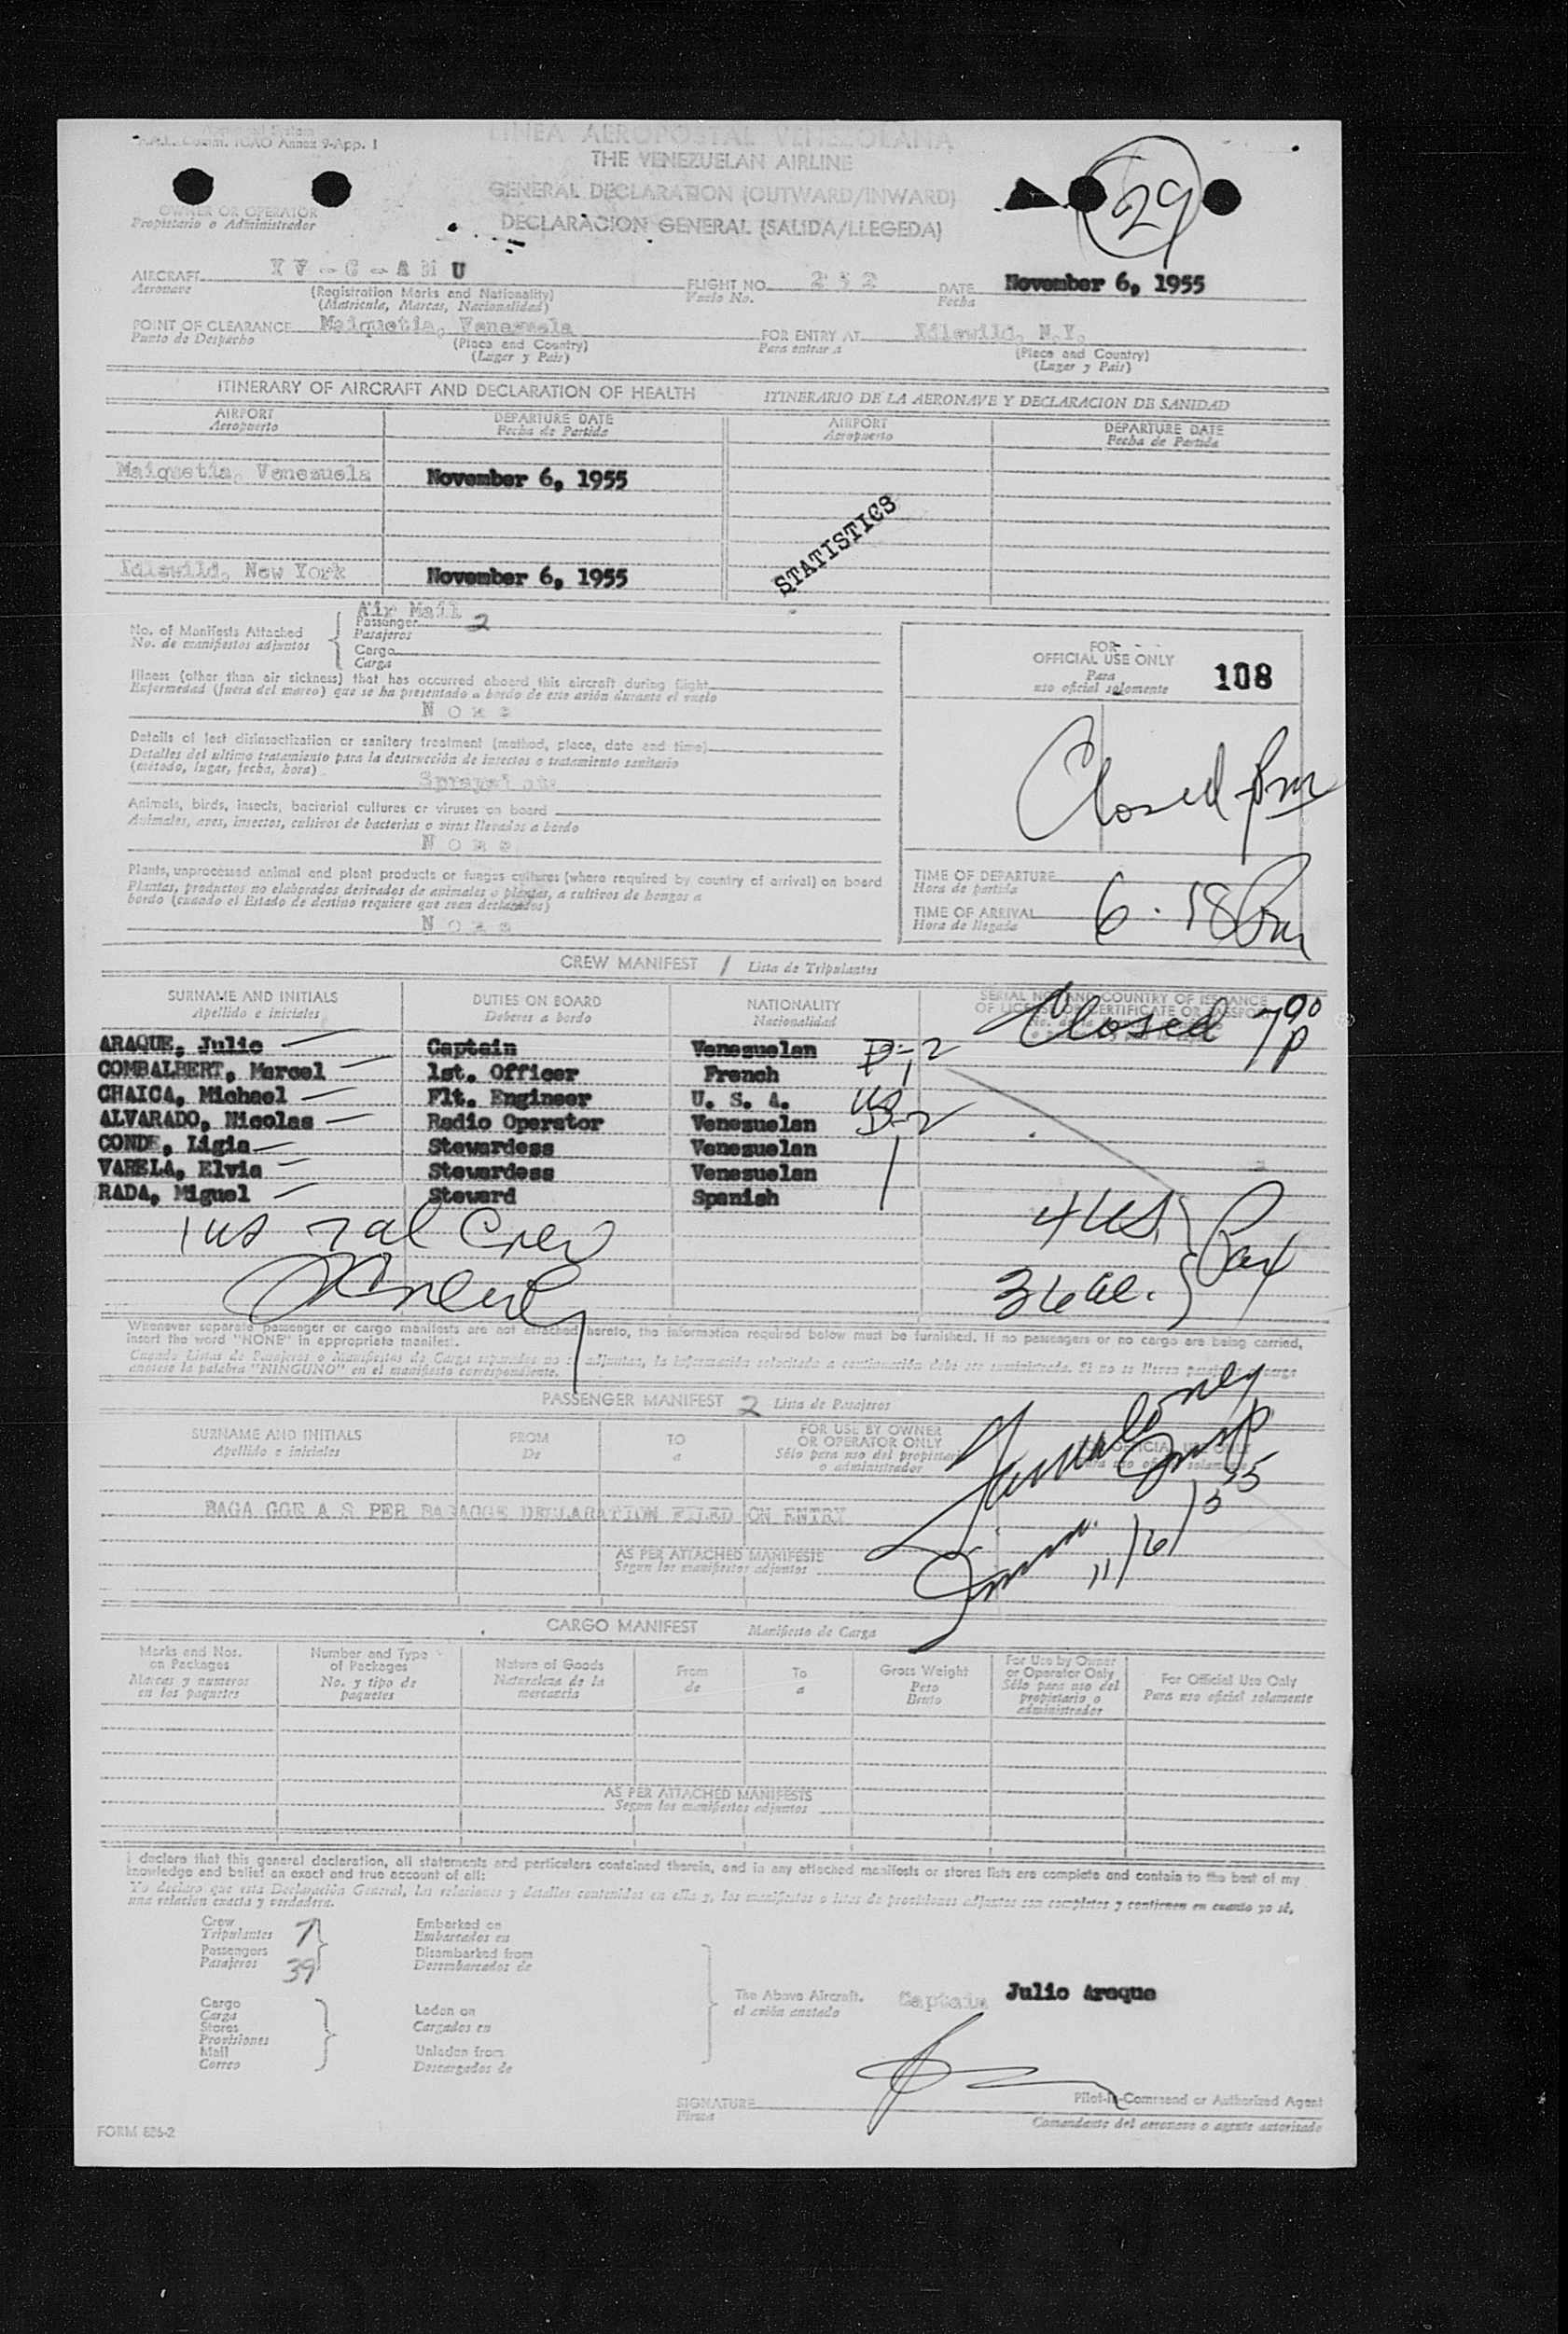 F.A.L. Comm. ICAO Annex 9-App. 1
LINEA AEROPOSTAL VENEZOLANA
THE VENEZUELAN AIRLINE
GENERAL DECLARATION (OUTWARD/INWARD)
DECLARACION GENERAL (SALIDA/LLEGEDA)
29
OWNER OR OPERATOR
Propietario o Administrador
AIRCRAFT YV-C-AMU FLIGHT NO. 252 DATE November 6, 1955
Aeronave (Registration Marks and Nationality) Vuelo No. Fecha
(Matricula, Marcas, Nacionalidad)
POINT OF CLEARANCE Maiquetia, Venezuela FOR ENTRY AT Idlewild, N.Y.
Punto de Despacho (Place and Country) Para entrar a (Place and Country)
(Lugar y Pais) (Lugar y Pais)
ITINERARY OF AIRCRAFT AND DECLARATION OF HEALTH ITINERARIO DE LA AERONAVE Y DECLARACION DE SANIDAD
AIRPORT DEPARTURE DATE AIRPORT DEPARTURE DATE
Aeropuerto Fecha de Partida Aeropuerto Fecha de Partida
Maiquetia, Venezuela November 6, 1955
STATISTICS
Idlewild, New York November 6, 1955
Air Mail
No. of Manifests Attached Passenger 2
No. de manifiestos adjuntos Pasajeros
Cargo
Carga
Illness (other than air sickness) that has occurred aboard this aircraft during flight
Enfermedad (fuera del mareo) que se ha presentado a bordo de este avión durante el vuelo
None
FOR
OFFICIAL USE ONLY 108
Para
uso oficial solamente
Details of last disinsectization or sanitary treatment (method, place, date and time)
Detalles del ultimo tratamiento para la destrucción de insectos o tratamiento sanitario
(método, lugar, fecha, hora)
Sprayed at:
Closed pm
Animals, birds, insects, bacterial cultures or viruses on board
Animales, aves, insectos, cultivos de bacterias o virus llevados a bordo
None
Plants, unprocessed animal and plant products or fungus cultures (where required by country of arrival) on board
Plantas, productos no elaborados derivados de animales o plantas, a cultivos de hongos a
bordo (cuando el Estado de destino requiere que sean declarados)
None
TIME OF DEPARTURE
Hora de partida
TIME OF ARRIVAL 6.18 Pm
Hora de llegada
CREW MANIFEST / Lista de Tripulantes
SURNAME AND INITIALS DUTIES ON BOARD NATIONALITY SERIAL NO. AND COUNTRY OF ISSUANCE
Apellido e iniciales Deberes a bordo Nacionalidad OF LICENSE OR CERTIFICATE OR PASSPORT
Closed 7 90 P
ARAQUE, Julio Captain Venezuelan D-2
COMBALBERT, Marcel 1st. Officer French
CHAICA, Michael Flt. Engineer U. S. A. US
ALVARADO, Nicolas Radio Operator Venezuelan D-2
CONDE, Ligia Stewardess Venezuelan
VARELA, Elvia Stewardess Venezuelan
RADA, Miguel Steward Spanish
1 US 7 al Crew
4 US. Pax
36 al.
Whenever separate passenger or cargo manifests are not attached hereto, the information required below must be furnished. If no passengers or no cargo are being carried,
insert the word "NONE" in appropriate manifest.
Cuando Listas de Pasajeros o Manifiestos de Carga separados no se adjuntan, la información solicitada a continuación debe ser suministrada. Si no se llevan pasajeros o carga
anotese la palabra "NINGUNO" en el manifiesto correspondiente.
PASSENGER MANIFEST 2 Lista de Pasajeros
SURNAME AND INITIALS FROM TO FOR USE BY OWNER OR OPERATOR ONLY FOR OFFICIAL USE ONLY
Apellido e iniciales De a Sólo para uso del propietario o administrador Para uso oficial solamente
BAGA GGE A S PER BAGAGGE DECLARATION FILED ON ENTRY
11/6/55
AS PER ATTACHED MANIFESTS
Segun los manifiestos adjuntos
CARGO MANIFEST Manifiesto de Carga
Marks and Nos. on Packages Number and Type of Packages Nature of Goods From To Gross Weight For Use by Owner or Operator Only For Official Use Only
Marcas y numeros en los paquetes No. y tipo de paquetes Naturaleza de la mercancia de a Peso Bruto Sólo para uso del propietario o administrador Para uso oficial solamente
AS PER ATTACHED MANIFESTS
Segun los manifiestos adjuntos
I declare that this general declaration, all statements and particulars contained therein, and in any attached manifests or stores lists are complete and contain to the best of my
knowledge and belief an exact and true account of all:
Yo declaro que esta Declaración General, las relaciones y detalles contenidos en ella y, los manifiestos o listas de provisiones adjuntas son completos y contienen en cuanto yo sé,
una relación exacta y verdadera.
Crew 7 Embarked on
Tripulantes Embarcados en
Passengers 39 Disembarked from
Pasajeros Desembarcados de
Cargo Laden on
Carga Cargados en
Stores
Provisiones
Mail Unladen from
Correo Descargados de
The Above Aircraft. Captain Julio Araque
el avión anotado
SIGNATURE Pilot-in-Command or Authorized Agent
Firma Comandante del aeronave o agente autorizado
FORM 826-2